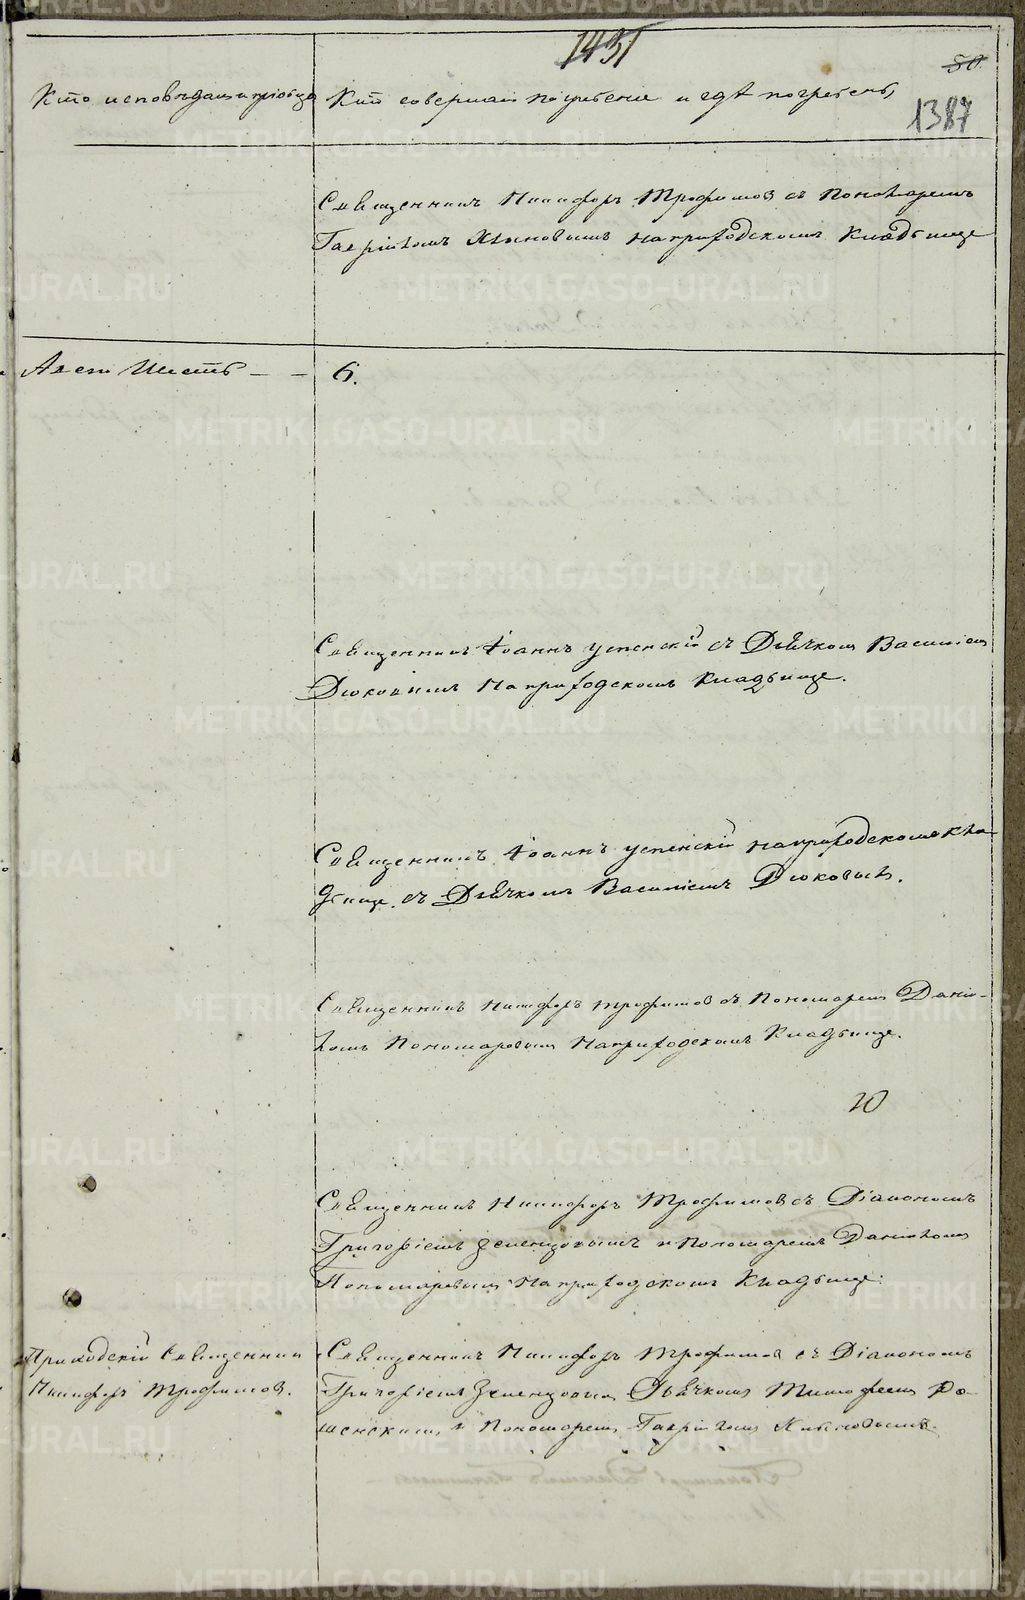 1431
50
1387
Кто исповѣдалъ и пріобщ
Кто совершалъ погребеніе и гдѣ погребены
Священникъ Никифоръ Трофимовъ съ Пономаремъ
Гавріиломъ Хлыновымъ на приходскомъ Кладбище
6.
Священникъ Іоаннъ Успенскій съ Дьячкомъ Василіем
Дюковымъ на приходскомъ Кладбище.
Священникъ Іоаннъ Успенскій на приходскомъ Кла-
дбище съ Дьячкомъ Василіемъ Дюковымъ.
Священникъ Никифоръ Трофимовъ съ Пономарем Дани-
ломъ Пономаревым на приходскомъ Кладбище.
Священникъ Никифоръ Трофимовъ съ Діакономъ
Григоріемъ и Пономаремъ Даниломъ
Пономаревым на приходскомъ Кладбище.
Приходскій Священник
Никифоръ Трофимов.
Священникъ Никифоръ Трофимов съ Діакономъ
Григоріем Дьячкомъ Тимофеем
и Пономарем Гавріилом Хлыновымъ.
METRIKI.GASO-URAL.RU